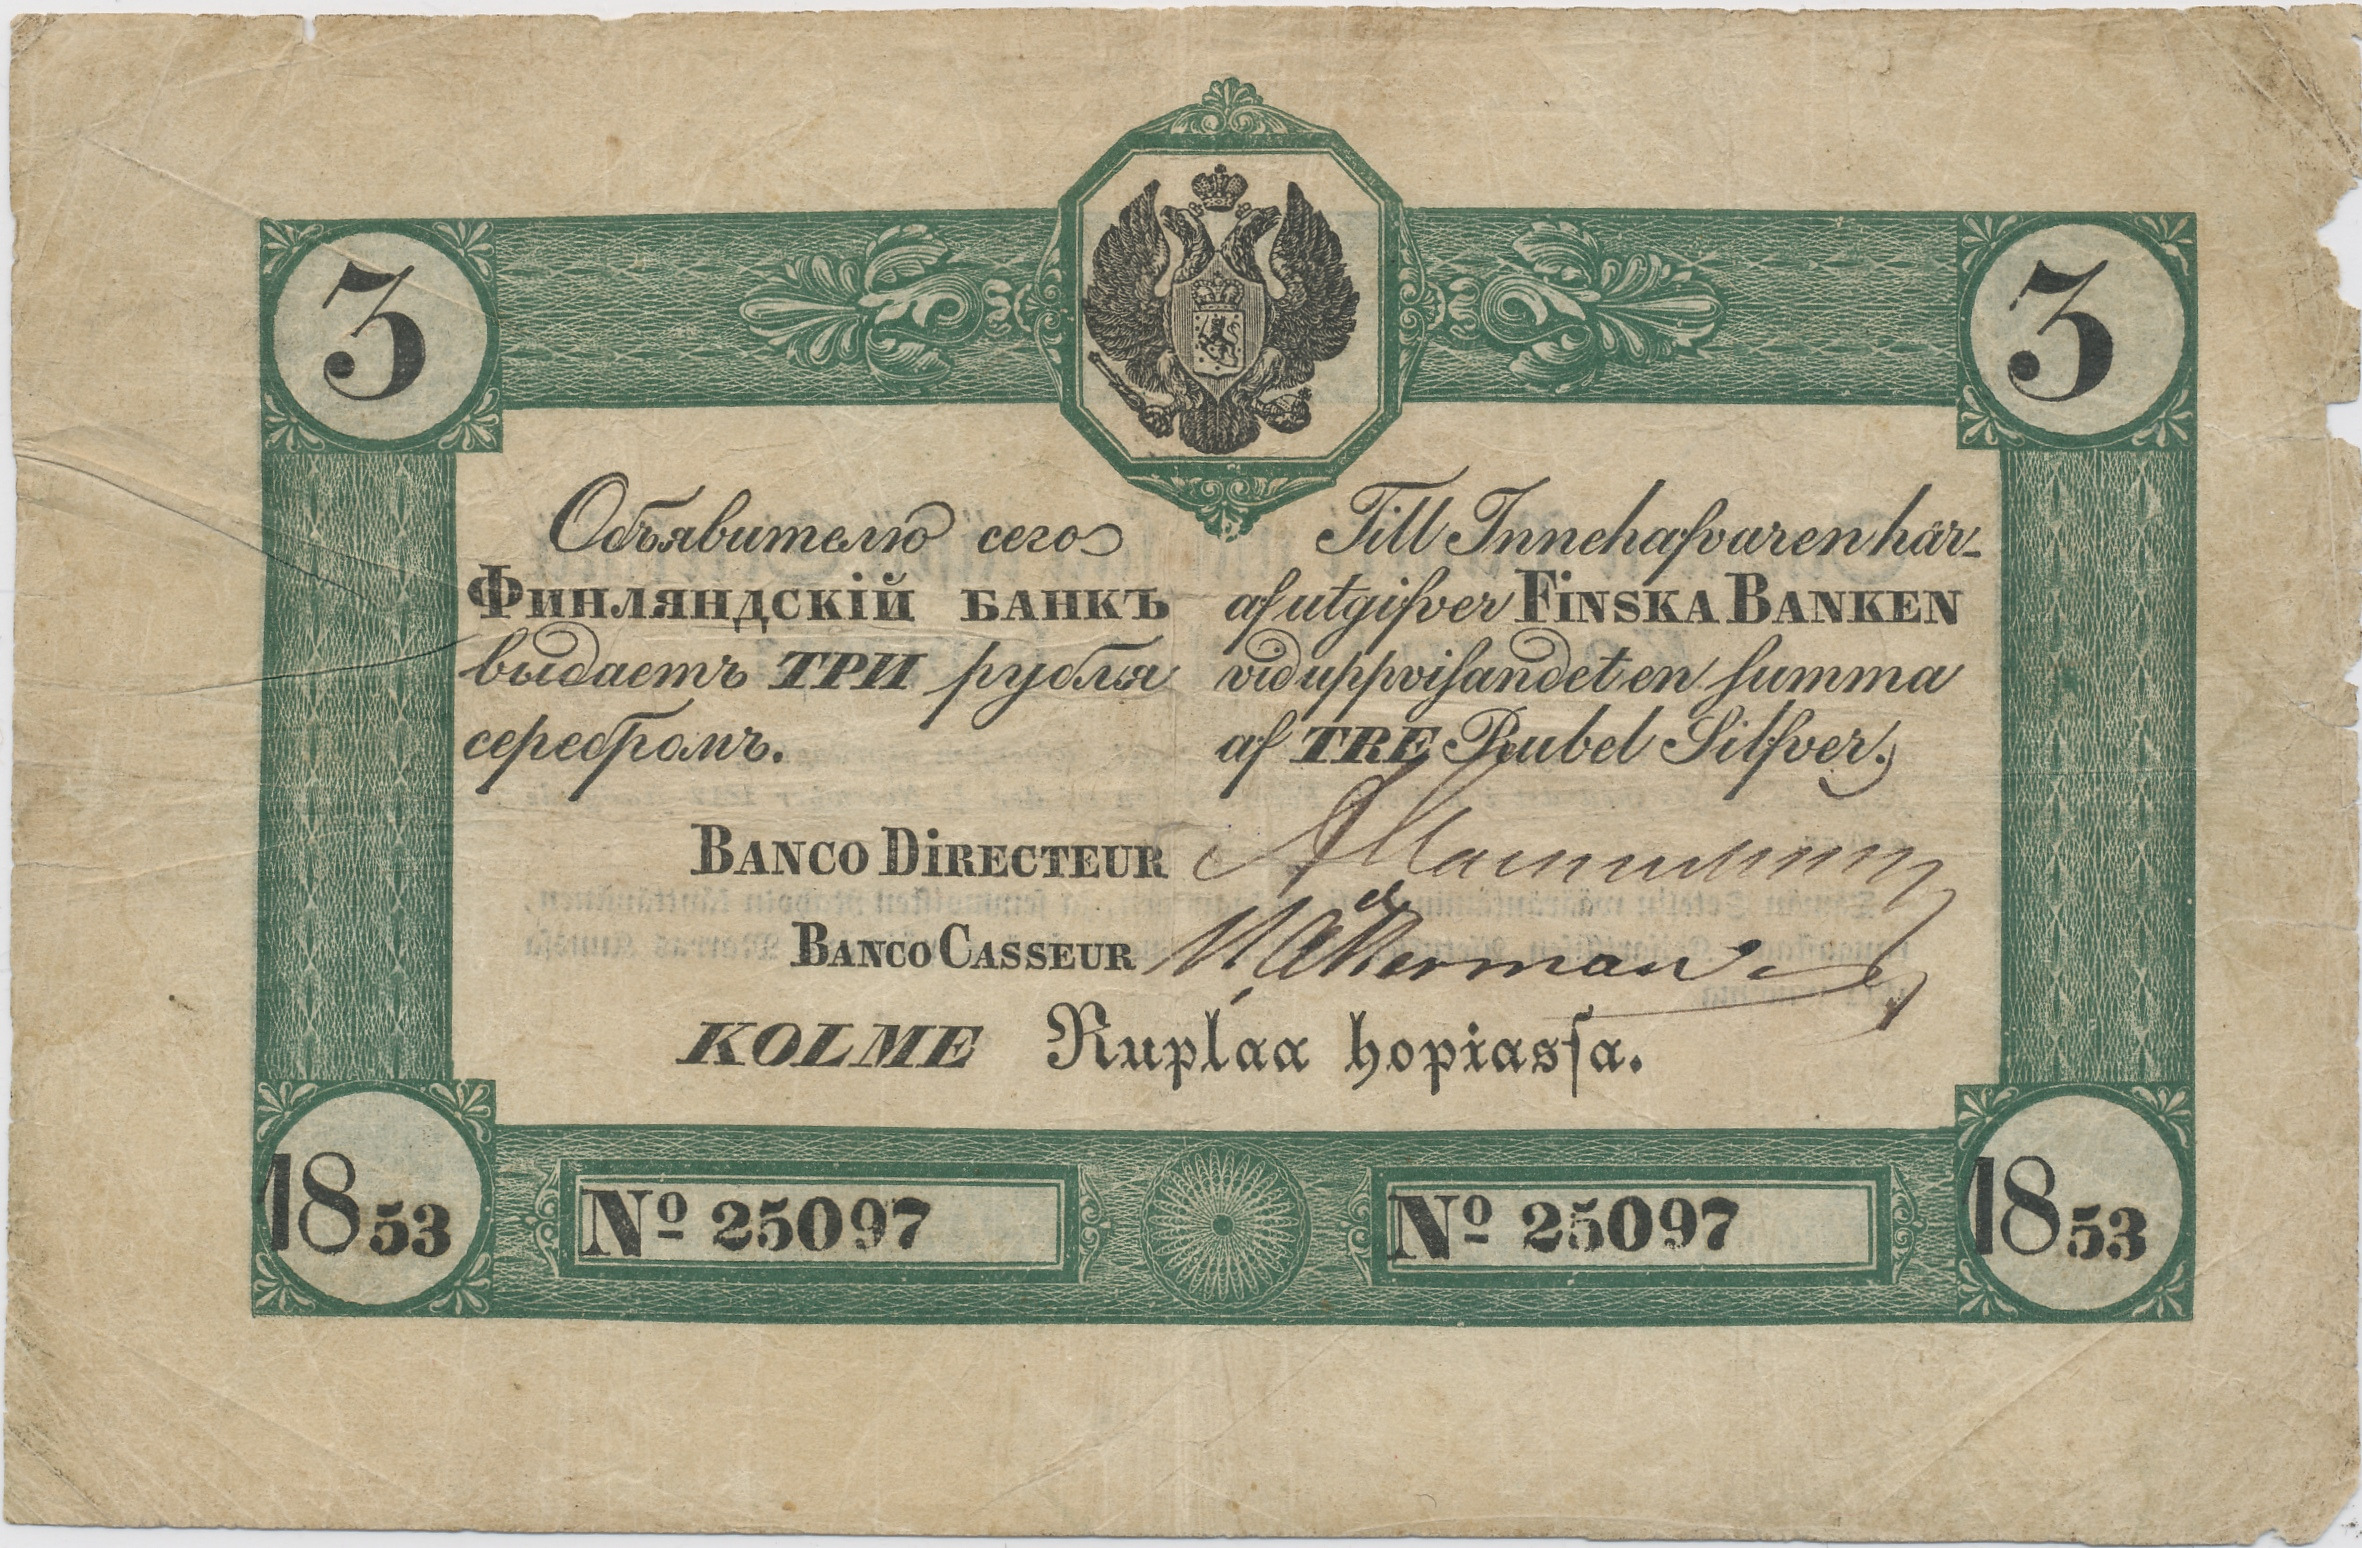 3
3
Объявителю сего
ФИНЛЯНДСКІЙ БАНКЪ
выдаетъ ТРИ рубля
серебромъ.
Till Innehafvaren här-
af utgifver FINSKA BANKEN
vid uppvisandet en summa
af TRE Rubel Silfver.
BANCO DIRECTEUR
BANCO CASSEUR
KOLME Ruplaa hopiassa.
1853
No 25097
No 25097
1853